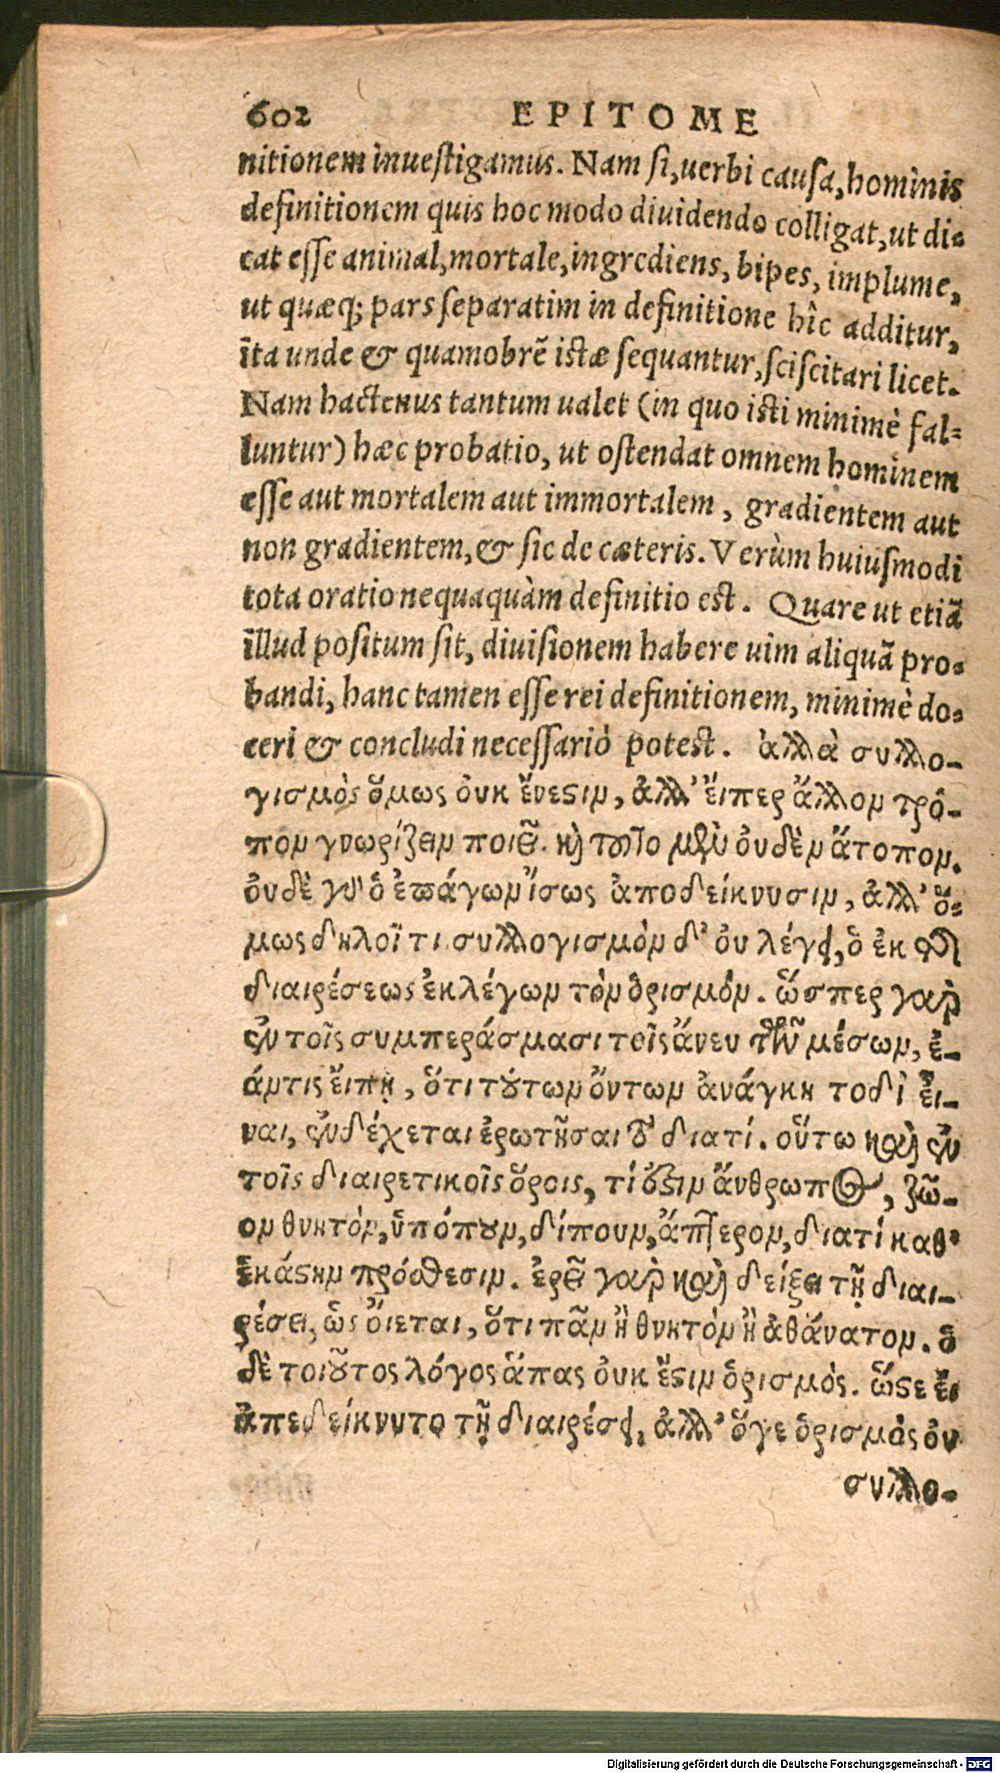 602 EPITOME
nitionem inuestigamus. Nam si, uerbi causa, hominis
definitionem quis hoc modo diuidendo colligat, ut di-
cat esse animal, mortale, ingrediens, bipes, implume,
ut quæq; pars separatim in definitione hîc additur,
ita unde & quamobrẽ istæ sequantur, sciscitari licet.
Nam hactenus tantum ualet (in quo isti minimè fal-
luntur) hæc probatio, ut ostendat omnem hominem
esse aut mortalem aut immortalem, gradientem aut
non gradientem, & sic de cæteris. Verùm huiusmodi
tota oratio nequaquàm definitio est. Quare ut etiã
illud positum sit, diuisionem habere uim aliquã pro-
bandi, hanc tamen esse rei definitionem, minimè do-
ceri & concludi necessariò potest. ἀλλὰ συλλο-
γισμὸς ὅμως ὀυκ ἔνεϛιν, ἀλλ' ἔιπερ ἄλλον τρό-
πον γνωρίζειν ποιεῖ. κὴ τοῦτο μὲν ὀυδὲν ἄτοπον.
ὀυδὲ γὰρ ὁ ἐπάγων ἴσως ἀποδείκνυσιν, ἀλλ' ὅ-
μως δηλοῖ τι. συλλογισμὸν δ' ὀυ λέγει, ὁ ἐκ τῆς
διαιρέσεως ἐκλέγων τὸν ὁρισμόν. ὥσπερ γὰρ
ἐν τοῖς συμπεράσμασι τοῖς ἄνευ τῶν μέσων, ἐ-
άν τις ἔιπῃ, ὅτι τȣ́των ὄντων ἀνάγκη τοδὶ ἔι-
ναι, ἐνδέχεται ἐρωτῆσαι τὸ διατί. οὕτω καὶ ἐν
τοῖς διαιρετικοῖς ὅροις, τί ὅϛιν ἄνθρωπος, ζῶ-
ον θνητὸν, ὑπόπȣν, δίπουν, ἄπτερον, διατί καθ'
ἑκάϛην πρόσθεσιν. ἐρεῖ γὰρ καὶ δείξει τῇ διαι-
ρέσει, ὡς ὄιεται, ὅτι πᾶν ἢ θνητὸν ἢ ἀθάνατον. ὁ
δὲ τοιȣ͂τος λόγος ἅπας ὀυκ ἔϛιν ὁρισμὸς. ὥϛε ἐι
ἀπεδείκνυτο τῇ διαιρέσει, ἀλλ' ὅγε ὁρισμὸς ὀυ
συλλο-
Digitalisierung gefördert durch die Deutsche Forschungsgemeinschaft - DFG